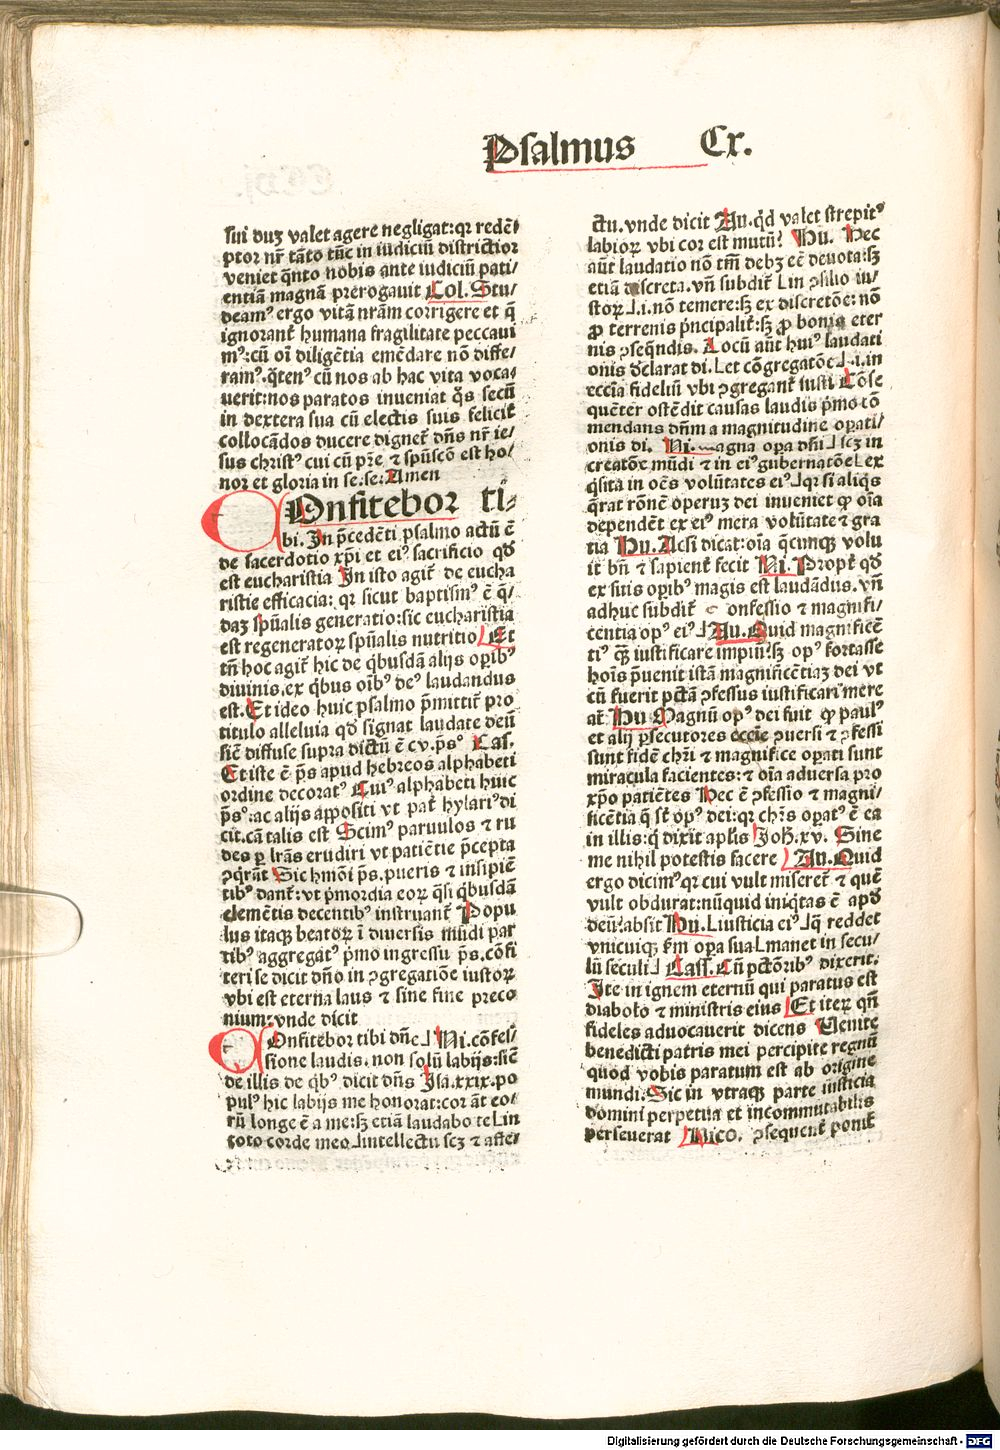 Psalmus Cx.
sui duꝫ valet agere negligat: qꝛ redē/
ptor nr̄ tāto tūc in iudiciū districtior
veniet q̄nto nobis ante iudiciū pati/
entiā magnā prerogauit Col. Stu/
deamꝰ ergo vitā nr̄am corrigere et q̄
ignorant̄ humana fragilitate peccaui
mꝰ: cū oī diligētia emēdare nō diffe/
ramꝰ. q̄tenꝰ cū nos ab hac vita voca/
uerit: nos paratos inueniat q̄s secū
in dextera sua cū electis suis felicit̄
collocādos ducere dignet̄ dn̄s nr̄ ie/
sus christꝰ cui cū pr̄e ⁊ sp̄uscō est ho/
nor et gloria in se. se: Amen
COnfitebor ti-
bi. In p̄cedēti psalmo actū ē
de sacerdotio xp̄i et eiꝰ sacrificio qd̄
est eucharistia In isto agit̄ de eucha
ristie efficacia: qꝛ sicut baptismꝰ ē q̄/
daꝫ sp̄ualis generatio: sic eucharistia
est regeneratoꝝ sp̄ualis nutritio Et
tn̄ hoc agit̄ hic de q̄busdā alijs oꝑibꝰ
diuinis. ex q̄bus oībꝰ deꝰ laudandus
est. Et ideo huic psalmo p̄mittit̄ pro
titulo alleluia qd̄ signat laudate deū
sic̄ diffuse supra dictū ē cv. p̄sꝰ Cas.
Et iste ē p̄s apud hebreos alphabeti
ordine decoratꝰ Cuiꝰ alphabeti huic
p̄sꝰ. ac alijs appositi vt pat̄ hylariꝰ di
cit. cā talis est Scimꝰ paruulos ⁊ ru
des ꝑ lr̄as erudiri vt patiētie p̄cepta
ꝯq̄rāt Sic hmōi p̄s. pueris ⁊ insipiē
tibꝰ dant̄: vt p̄mordia eoꝝ q̄si q̄busdā
elemētis decentibꝰ instruant̄ Popu
lus itaqꝫ beatoꝝ ī diuersis mūdi par
tibꝰ aggregatꝰ p̄mo ingressu p̄s. cōfi
teri se dicit dn̄o in ꝯgregatiōe iustoꝝ
vbi est eterna laus ⁊ sine fine preco
nium: vnde dicit
COnfitebor tibi dn̄e⅃ Ni. cōfes/
sione laudis. non solū labijs: sic̄
de illis de q̄bꝰ dicit dn̄s Isa. xxix. po
pulꝰ hic labijs me honorat: cor āt eo/
rū longe ē a me: sꝫ etiā laudabo te Lin
toto corde meo⅃ intellectu scꝫ ⁊ affe/
ctu. vnde dicit Au. q̄d valet strepitꝰ
labioꝝ vbi cor est mutū? Hu. Nec
aūt laudatio nō tm̄ debꝫ eē deuota: sꝫ
etiā discreta. vn̄ subdit̄ Lin ꝯsilio iu/
stoꝝ⅃. i. nō temere: sꝫ ex discretōe: nō
ꝓ terrenis p̄ncipalit̄: sꝫ ꝓ bonis eter
nis ꝯseq̄ndis. Locū aūt huiꝰ laudati
onis d̄clarat di. Let cōgregatōe⅃. i. in
ecc̄ia fideliū vbi ꝯgregant̄ iusti Cōse
quēter ostēdit causas laudis p̄mo cō
mendans dn̄m a magnitudine oꝑati/
onis di. Ni. magna oꝑa dn̄i⅃ scꝫ in
creatōe mūdi ⁊ in eiꝰ gubernatōe Lex
q̄sita in oēs volūtates eiꝰ⅃ qꝛ si aliq̄s
q̄rat rōnē operuꝫ dei inueniet ꝙ oīa
dependēt ex eiꝰ mera volūtate ⁊ gra
tia Hu. Acsi dicat: oīa q̄cunqꝫ volu
it bn̄ ⁊ sapient̄ fecit Ni. Propt̄ qd̄
ex sitis oꝑibꝰ magis est laudādus. vn̄
adhuc subdit̄ onfessio ⁊ magnifi/
centia opꝰ eiꝰ⅃ Au. Quid magnificē
tiꝰ qȝ iustificare impiū? sꝫ opꝰ fortasse
hoīs p̄uenit istā magnificētiaꝫ dei vt
cū fuerit pctā ꝯfessus iustificari mere
at̄ Hu Magnū opꝰ dei fuit ꝙ paulꝰ
et alij ꝑsecutores eccīe ꝯuersi ⁊ ꝯfessi
sunt fidē chr̄i ⁊ magnifice oꝑati sunt
miracula facientes: ⁊ oīa aduersa pro
xp̄o patiētes Nec ē ꝯfessio ⁊ magni/
ficētia q̄ st̄ opꝰ dei: qꝛ chr̄s oꝑatꝰ ē ea
in illis: q̄ dixit apl̄is Joh̄. xv. Sine
me nihil potestis facere Au. Quid
ergo dicimꝰ qꝛ cui vult miseret̄ ⁊ quē
vult obdurat: nūquid iniq̄tas ē apd̄
deū? absit Hu. Liusticia eiꝰ⅃ q̄ reddet
vnicuiqꝫ ẜm oꝑa sua Lmanet in secu/
lū seculi⅃ Cass. Cū pctōribꝰ dixerit.
Ite in ignem eternū qui paratus est
diabolo ⁊ ministris eius Et iteꝝ qn̄
fideles aduocauerit dicens Venite
benedicti patris mei percipite regnū
quod vobis paratum est ab origine
mundi. Sic in vtraqꝫ parte iusticia
domini perpetua et incommutabilis
perseuerat Nico. ꝯsequent̄ ponit̄
Digitalisierung gefördert durch die Deutsche Forschungsgemeinschaft - DFG